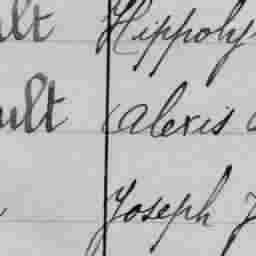 ult Hippoly
ult Alexis
Joseph J